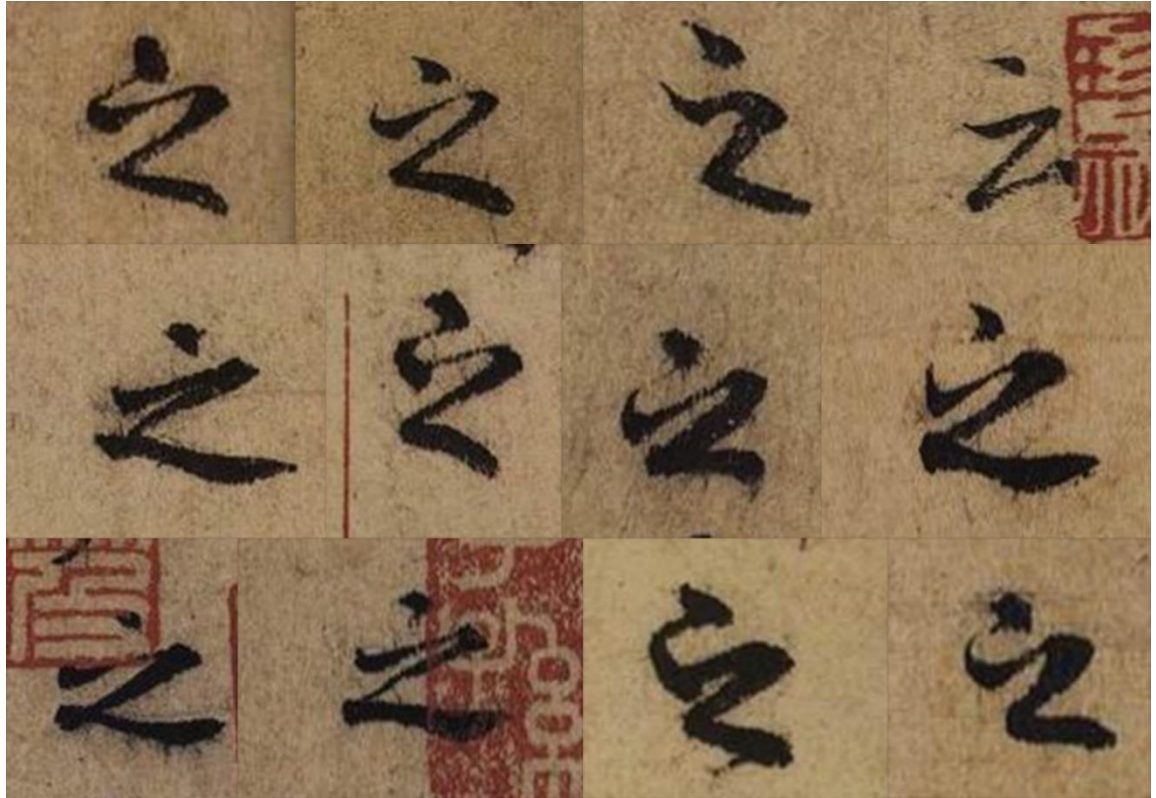 之之之之
之之之之
之之之之